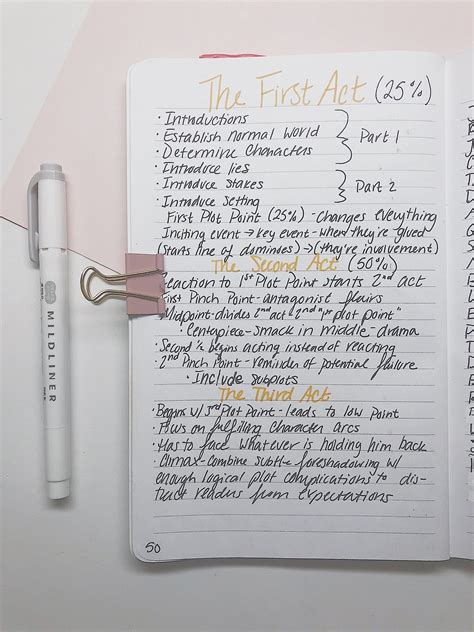 The First Act (25%)
· Introductions
· Establish normal World
· Determine Characters
Part 1
· Introduce lies
· Introduce stakes
· Introduce Setting
Part 2
First Plot Point (25%) - Changes everything
Inciting event → Key event - when they're glued
(Starts line of dominoes) → (they're involvement)
The Second Act (50%)
Reaction to 1st Plot Point starts 2nd act
First Pinch Point - antagonist flairs
Midpoint - divides 2nd act 2nd plot point"
· Centerpiece - smack in middle - drama
· Second ½ begins acting instead of reacting
· 2nd Pinch Point - reminder of potential failure
· Include subplots
The Third Act
· Begins w/ 3rd Plot Point - leads to low point
· Focus on fulfilling character arcs
· Has to face whatever is holding him back
· Climax - combine subtle foreshadowing w/
enough logical plot complications to dis-
tract readers from expectations
50
MILDLINER